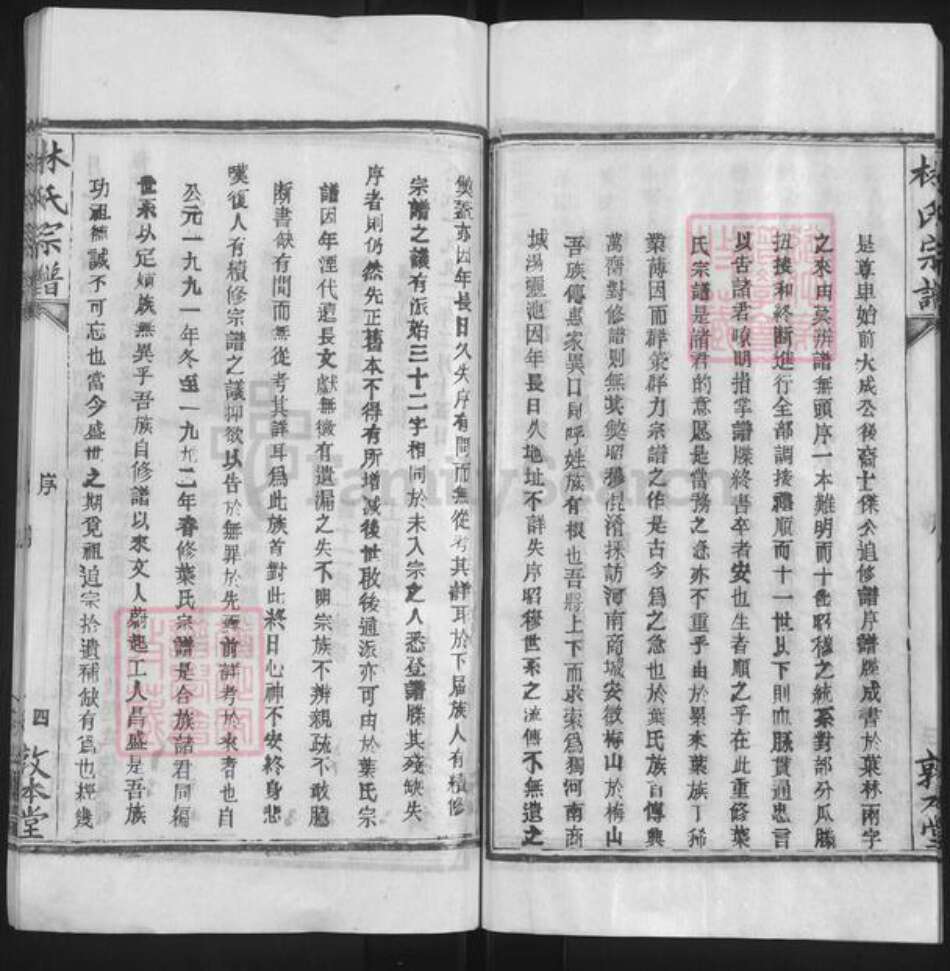 林氏宗譜
是尊卑始前大成公後裔士傑公追修譜序譜牒成書於葉林兩字
之來由莫辨譜無頭序一本難明而十世昭穆之統系對部分瓜勝
扭接和終斷進行全部調接禮順而十一世以下則血脈貫通忠言
以告諸君曉明指掌譜牒終書卒者安也生者順之乎在此重修葉
氏宗譜是諸君的意愿是當務之急亦不重乎由於累來葉族丁稀
業薄因而群策群力宗譜之作是古今為之急也於葉氏族百傳興
萬裔對修譜則無其獎昭穆混淆採訪河南商城安徽梅山於梅山
吾族傳惠家異口同呼姓族有根也吾將上下而求索為獨河南商
城湯彊池因年長日久地址不詳失序昭穆世系之流傳不無遺之
敦本堂
煥蓋亦因年長日久失序有問而無從考其詳耳於下屆族人有積修
宗譜之議有派始三十二字相同於未入宗之人悉登譜牒其殘缺失
序者則仍然先正舊本不得有所增減後世啟後通派亦可由於葉氏宗
譜因年湮代遠長文獻無徵有遺漏之失不明宗族不辨親疏不敢臆
斷書缺有間而無從考其詳耳為此族首對此終日心神不安終身悲
嘆復人有積修宗譜之議抑欲以告於無罪於先 前詳考於來者也自
公元一九九一年冬至一九九二年春修葉氏宗譜是合族諸君同編
世系以定 族無異乎吾族自修譜以來文人蔚起工人昌盛是吾族
功祖德誠不可忘也當今盛世之期覓祖追宗拾遺補缺有為也經幾
林氏宗譜
序
四
敦本堂
FamilySearch